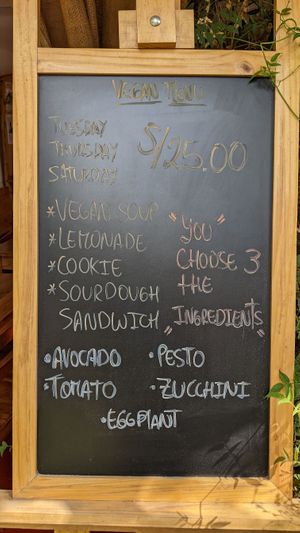 VEGAN MENU
TUESDAY
THURSDAY
SATURDAY
S/25.00
*VEGAN SOUP
*LEMONADE
*COOKIE
*SOURDOUGH
SANDWICH
"YOU"
CHOOSE 3
THE
"INGREDIENTS"
•AVOCADO
•PESTO
•TOMATO
•ZUCCHINI
•EGGPLANT